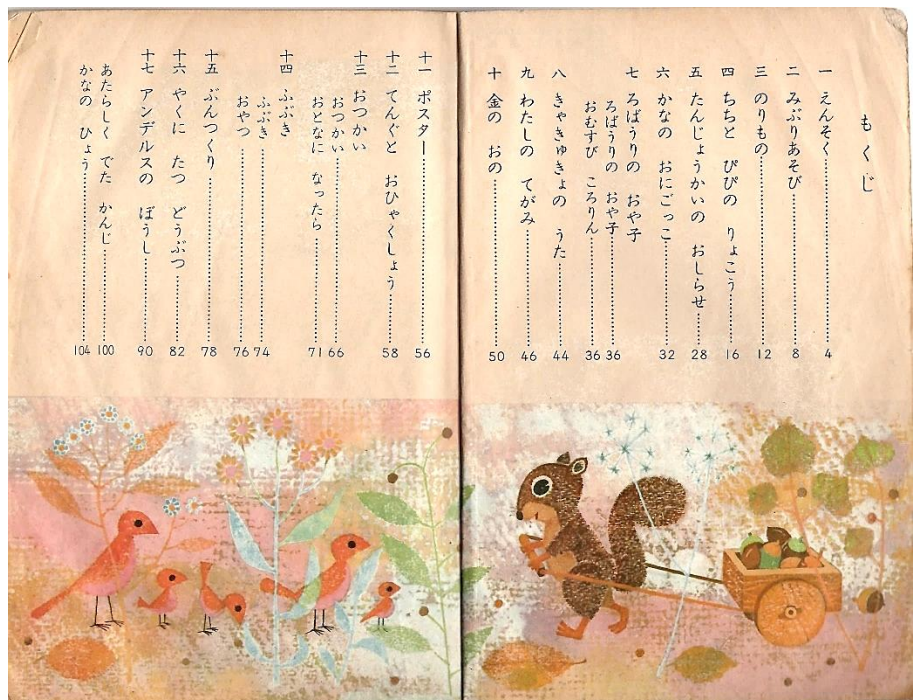 もくじ
一 えんそく……4
二 みぶりあそび……8
三 のりもの……12
四 ちちと ぴぴの りょこう……16
五 たんじょうかいの おしらせ……28
六 かなの おにごっこ……32
七 ろばうりの おや子
ろばうりの おや子……36
おむすび ころりん……36
八 きゃきゅきょの うた……44
九 わたしの てがみ……46
十 金の おの……50
十一 ポスター……56
十二 てんぐと おひゃくしょう……58
十三 おつかい
おつかい……66
おとなに なったら……71
十四 ふぶき
ふぶき……74
おやつ……76
十五 ぶんつくり……78
十六 やくに たつ どうぶつ……82
十七 アンデルスの ぼうし……90
あたらしく でた かんじ……100
かなの ひょう……104